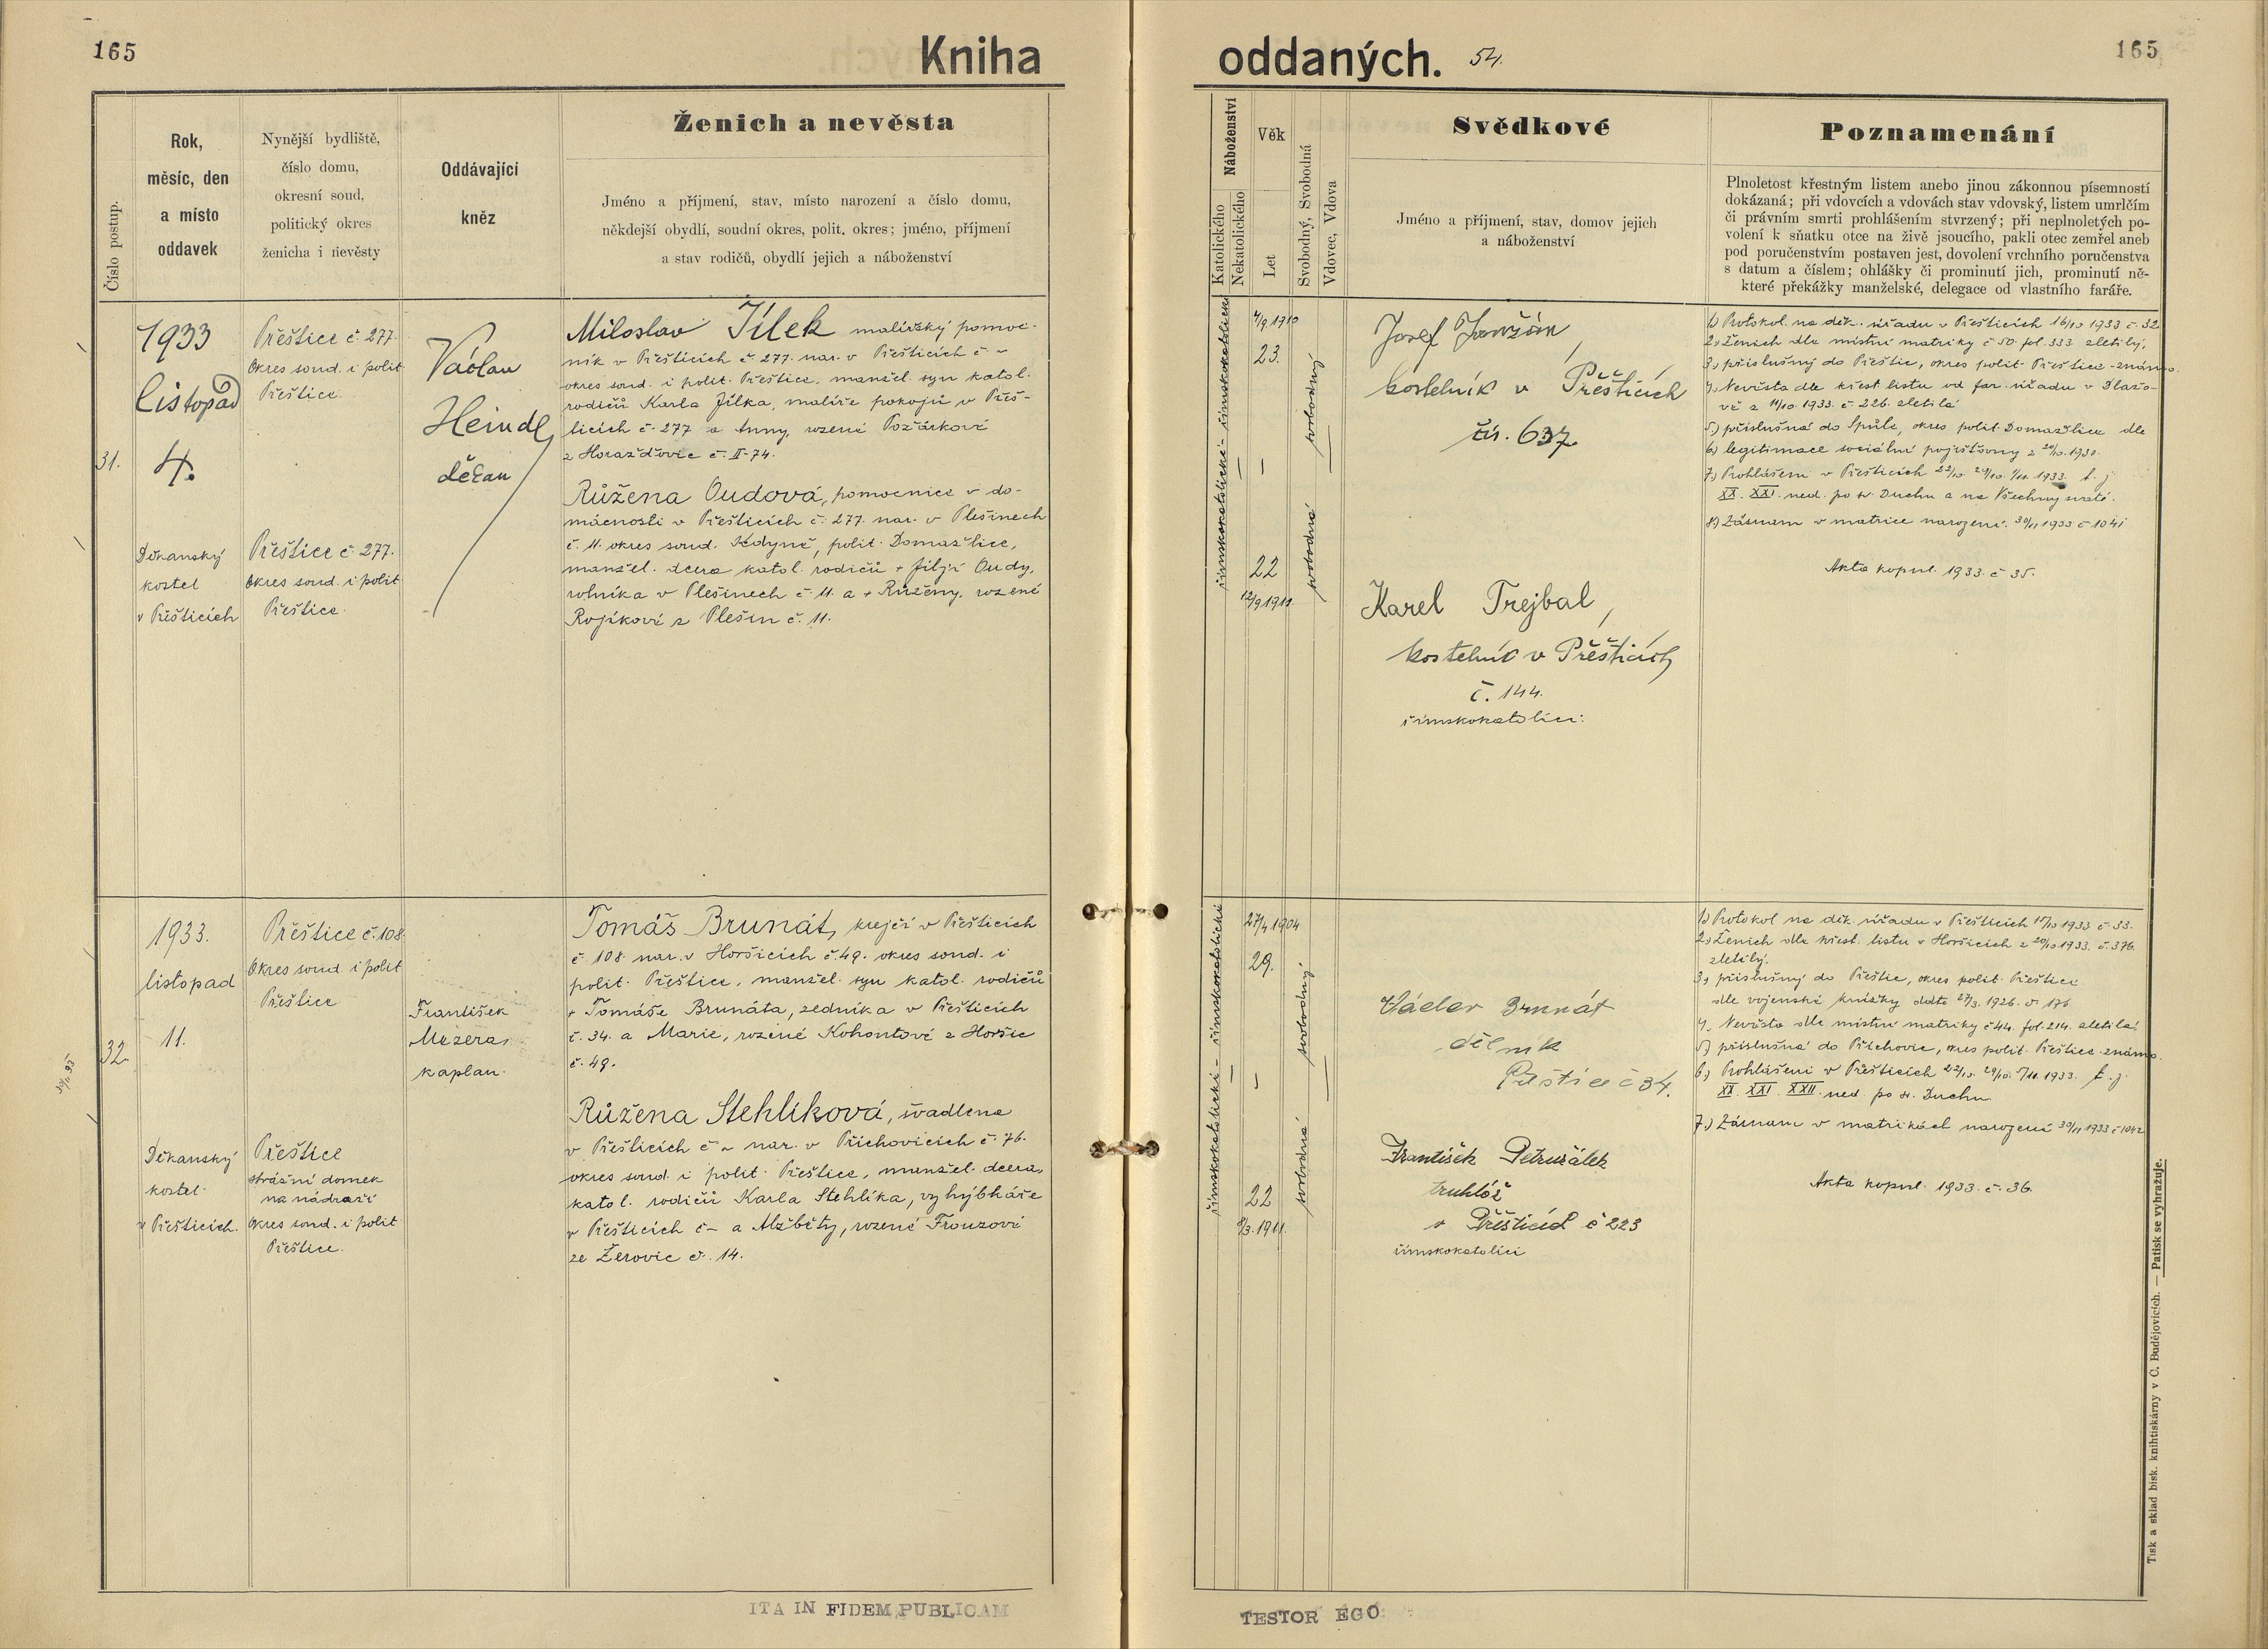 165
Kniha
oddaných.
54.
165
Číslo postup.
Rok,
měsíc, den
a místo
oddavek
Nynější bydliště,
číslo domu,
okresní soud,
politický okres
ženicha i nevěsty
Oddávající
kněz
Ženich a nevěsta
Jméno a příjmení, stav, místo narození a číslo domu,
někdejší obydlí, soudní okres, polit. okres; jméno, příjmení
a stav rodičů, obydlí jejich a náboženství
Náboženství
Katolického
Nekatolického
Věk
Let
Svobodný, Svobodná
Vdovec, Vdova
Svědkové
Jméno a příjmení, stav, domov jejich
a náboženství
Poznamenání
Plnoletost křestným listem anebo jinou zákonnou písemností
dokázaná; při vdovcích a vdovách stav vdovský, listem umrlčím
či právním smrti prohlášením stvrzený; při neplnoletých po-
volení k sňatku otce na živě jsoucího, pakli otec zemřel aneb
pod poručenstvím postaven jest, dovolení vrchního poručenstva
s datum a číslem; ohlášky či prominutí jich, prominutí ně-
které překážky manželské, delegace od vlastního faráře.
31.
1933
Listopad
4.
Děkanský
kostel
v Přešticích
Přeštice č. 277.
Okres soud. i polit
Přeštice.
Přeštice č. 277.
Okres soud. i polit
Přeštice.
Václav
Heindl,
děkan
Miloslav Jílek malířský pomoc-
ník v Přešticích č. 277. nar. v Přešticích č. ~
okres soud. i polit. Přeštice, manžel. syn katol.
rodičů Karla Jílka, malíře pokojů v Přeš-
ticích č. 277 a Anny, rozené Požárkové
z Horažďovic č. II-74.
Růžena Oudová, pomocnice v do-
mácnosti v Přešticích č. 277. nar. v Plešinech
č. 11. okres soud. Kdyně, polit. Domažlice,
manžel. dcera katol. rodičů + Jiljí Oudy,
rolníka v Plešinech č. 11. a + Růženy, rozené
Rojíkové z Plešin č. 11.
římskokatolické - římskokatolické
4/9 1910
23.
22
12/9 1911.
svobodný
svobodná
Josef
kostelník v Přešticích
čís. 637.
Karel Trejbal,
kostelník v Přešticích
č. 144.
římskokatolíci.
1) Protokol na děk. úřadu v Přešticích 16/10 1933 č. 32
2.) Ženich dle místní matriky č. 50. fol. 333 zletilý,
3.) příslušný do Přeštic, okres polit. Přeštice - známo.
4.) Nevěsta dle křest. listu od far. úřadu v Blažo-
vě z 11/10. 1933. č. 226. zletilá
5.) příslušná do Spůle, okres polit. Domažlice dle
6) legitimace sociální pojišťovny z 20/10. 1930.
7.) Prohlášeni v Přešticích 22/10 29/10. 1/11. 1933. t. j.
XX. XXI. ned. po sv. Duchu a na Všechny svaté.
8.) Záznam v matrice narození. 30/11 1933 č 1041
Akta kopul. 1933. č. 35.
32.
1933.
listopad
11.
Děkanský
kostel
v Přešticích.
Přeštice č. 108
Okres soud. i polit
Přeštice
Přeštice
strážní domek
na nádraží
okres soud. i polit
Přeštice.
František
Mezera,
kaplan.
Tomáš Brunát, krejčí v Přešticích
č. 108 nar. v Horšicích č. 49. okres soud. i
polit. Přeštice, manžel. syn katol. rodičů
+ Tomáše Brunáta, zedníka v Přešticích
č. 34. a Marie, rozené Kohoutové z Horšic
č. 49.
Růžena Stehlíková, švadlena
v Přešticích č ~ nar. v Příchovicích č. 76.
okres soud. i polit. Přeštice, manžel. dcera,
katol. rodičů Karla Stehlíka, vyhýbkáře
v Přešticích č - a Alžběty, rozené Frouzové
ze Žerovic č. 14.
římskokatolické - římskokatolické
27/4 1904
29.
22
8/3. 1911.
svobodný
svobodná
Václav Brunát
dělník
Přeštice č 34.
František Petružálek
truhlář
v Přešticích č 223
římskokatolíci
1) Protokol na děk. úřadu v Přešticích 17/10 1933 č. 33.
2.) Ženich dle křest. listu v Horšicích z 20/10 1933. č. 376.
zletilý.
3.) příslušný do Přeštic, okres polit. Přeštice
dle vojenské knížky ddto 27/3. 1926. č. 176
4.) Nevěsta dle místní matriky č 44. fol. 214. zletilá.
5.) příslušná do Příchovic, okres polit. Přeštice - známo.
6.) Prohlášeni v Přešticích 22/10. 29/10. 5/11. 1933. t. j.
XX. XXI. XXII. ned. po sv. Duchu
7.) Záznam v matrikách narození 30/11 1933 č 1042
Akta kopul. 1933. č. 36.
ITA IN FIDEM PUBLICAM
TESTOR EGO
Tisk a sklad bisk. knihtiskárny v Č. Budějovicích. — Patisk se vyhražuje.